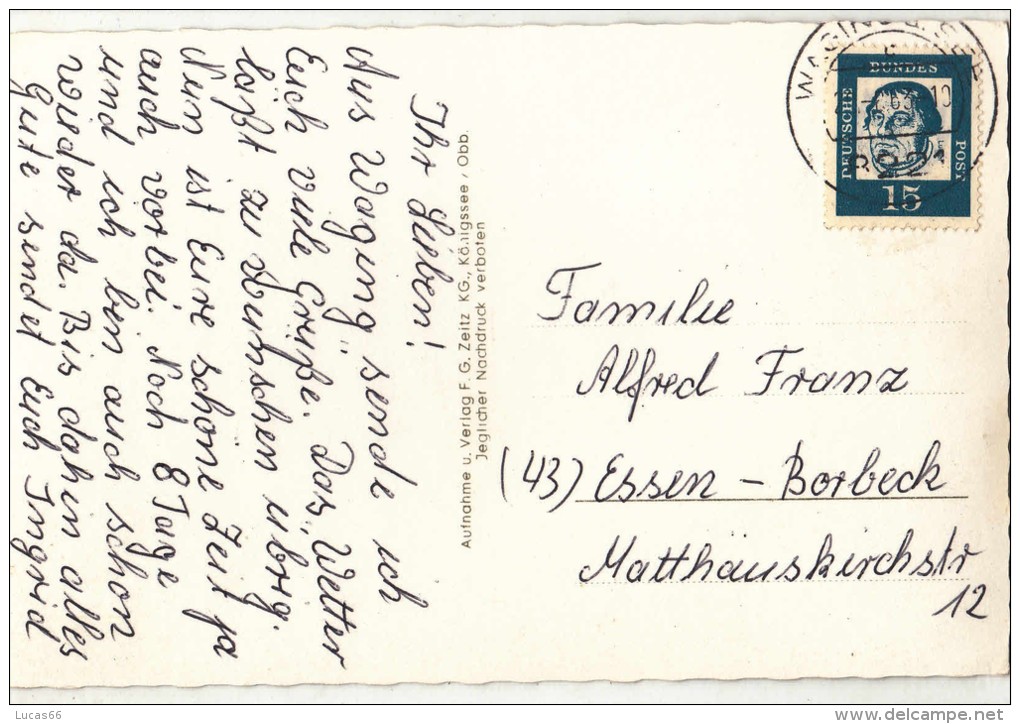 Ihr Lieben!
Aus Waging sende ich
Euch viele Grüße. Das Wetter
läßt zu Wünschen übrig.
Nun ist Eure schöne Zeit ja
auch vorbei. Noch 8 Tage
und ich bin auch schon
wieder da. Bis dahin alles
Gute sendet Euch Ingrid
Aufnahme u. Verlag F. G. Zeitz KG., Königssee / Obb.
Jeglicher Nachdruck verboten
WAGING
63.-10
8221
DEUTSCHE
BUNDES
POST
15
Familie
Alfred Franz
(43) Essen - Borbeck
Matthäuskirchstr
12
Lucas66
www.delcampe.net